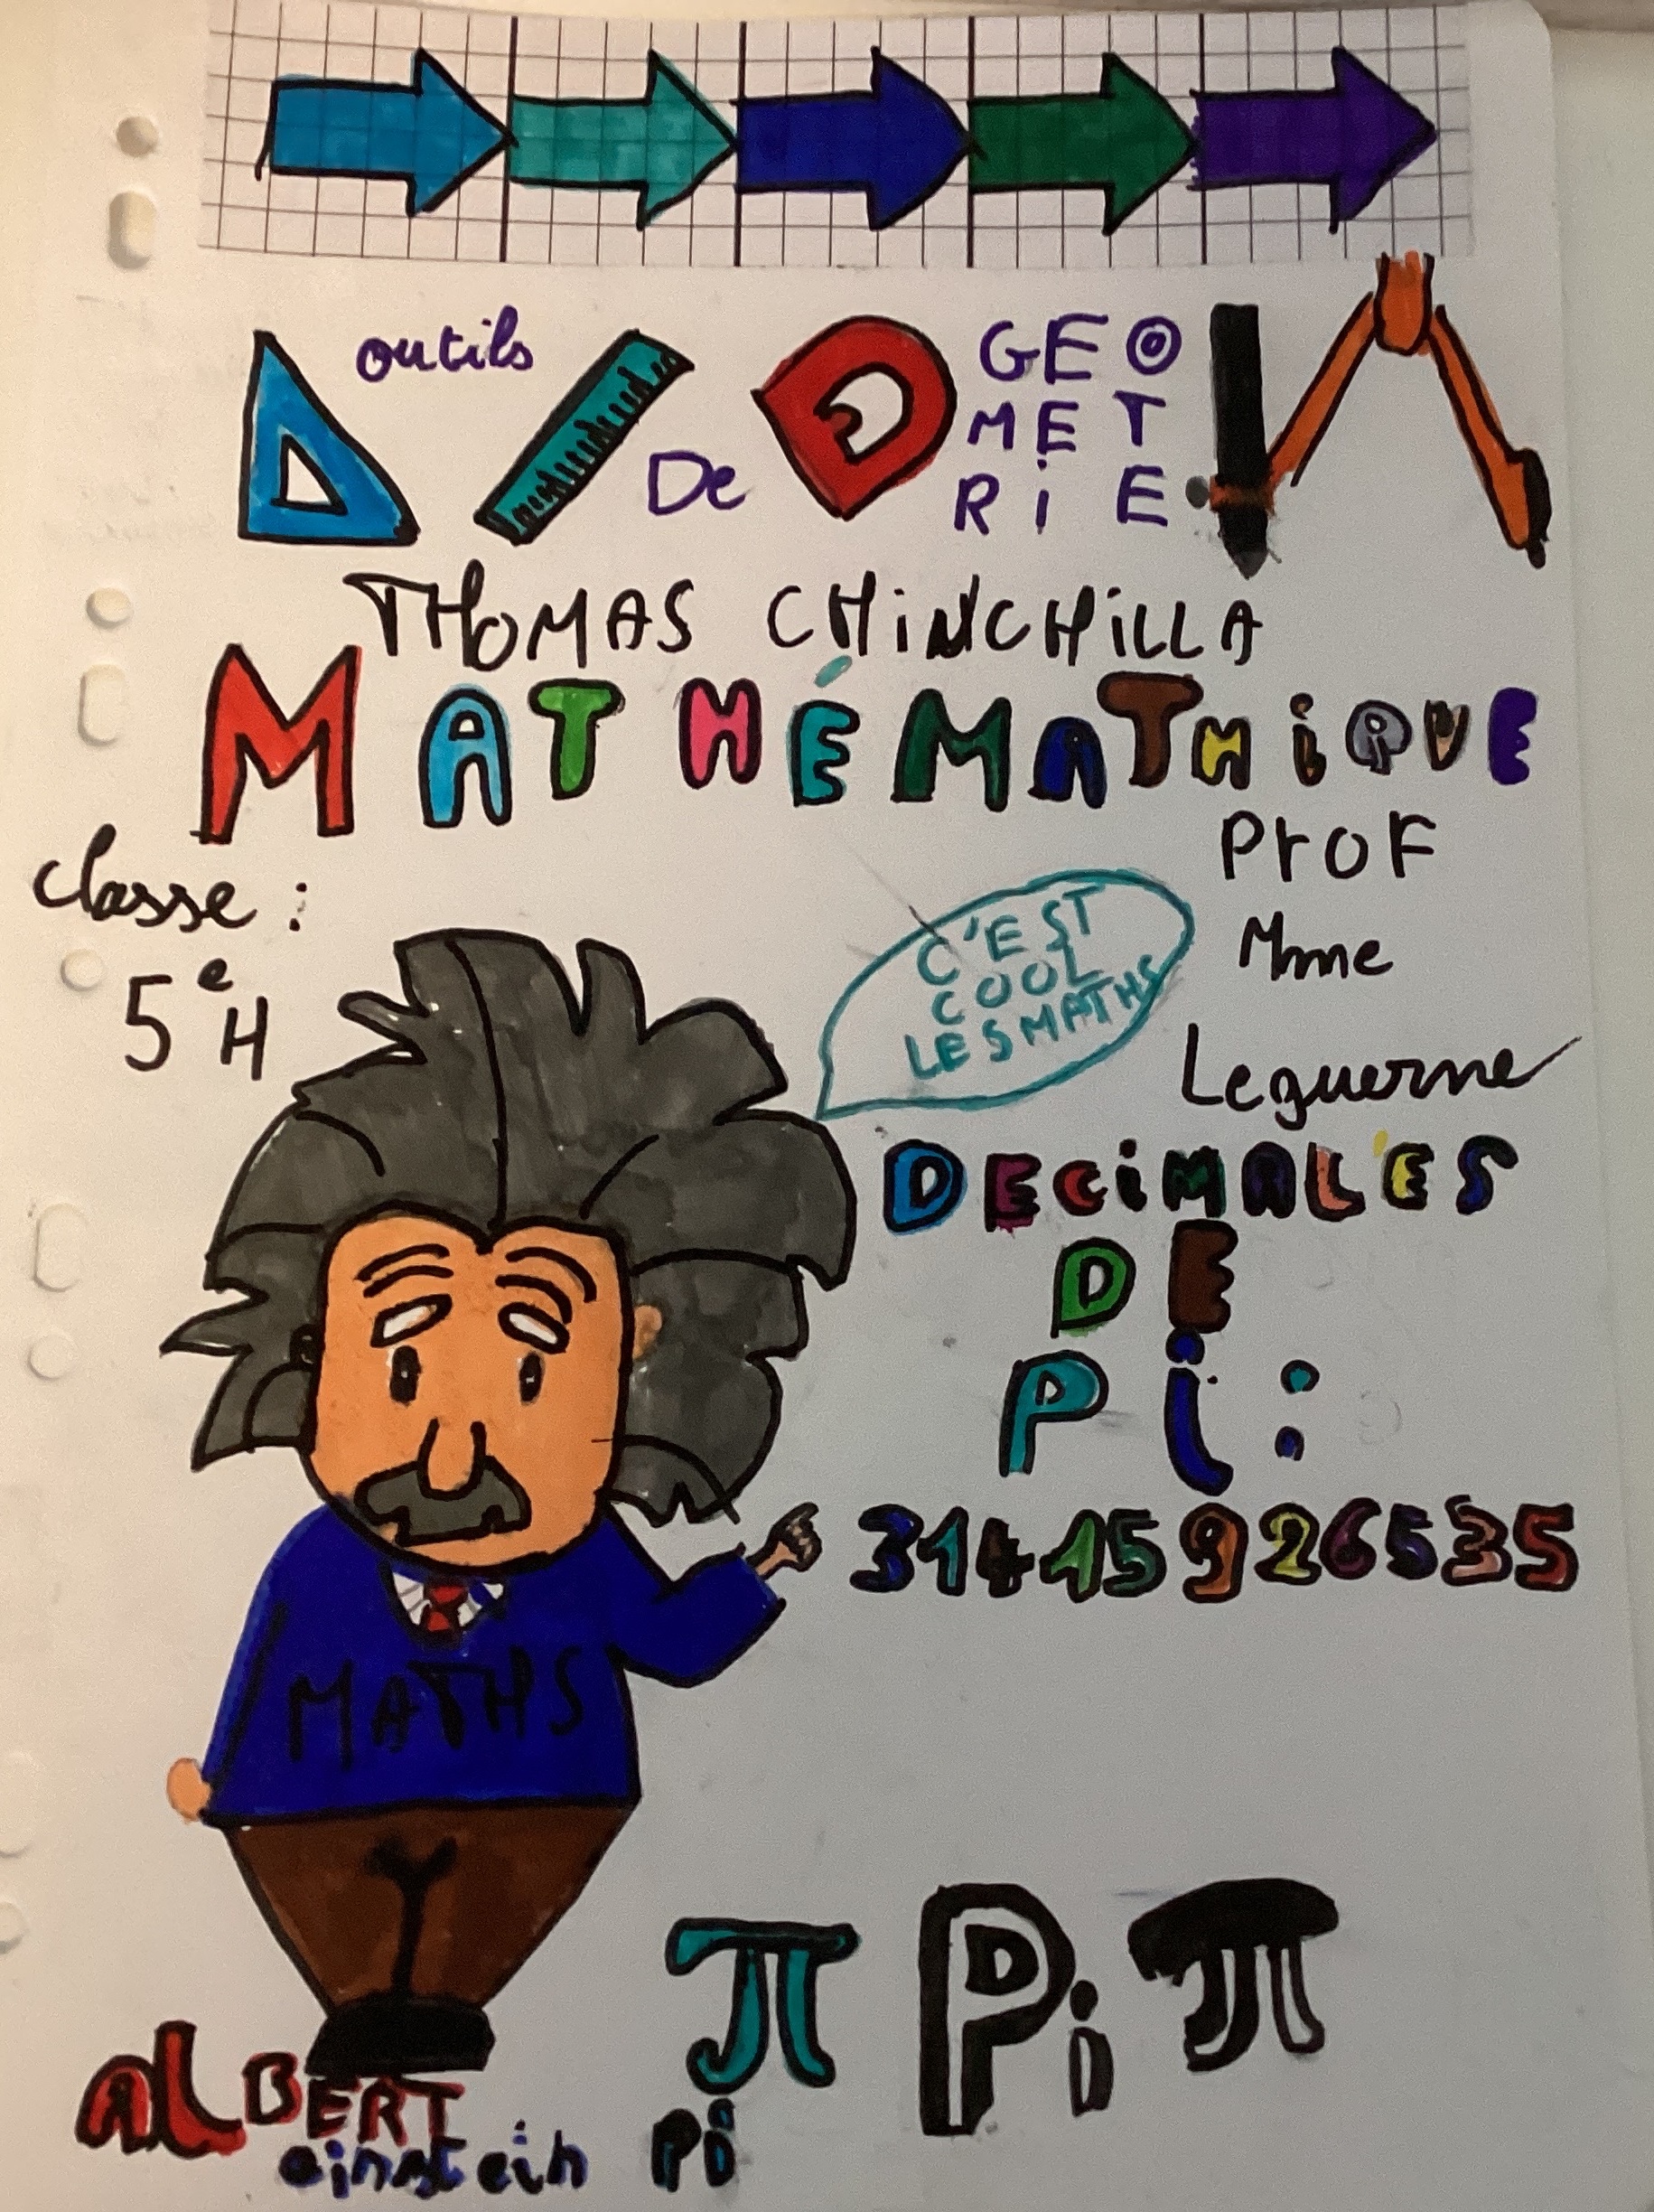 outils
De
GEO
MET
RiE
THOMAS CHiNCHiLLA
MATHÉMATHiQUE
Classe :
5e H
PrOF
Mme
Leguerne
C'EST
COOL
LES MATHS
DECiMALES
DE
Pi :
31415926535
MATHS
π Pi π
Pi
ALBERT
einstein